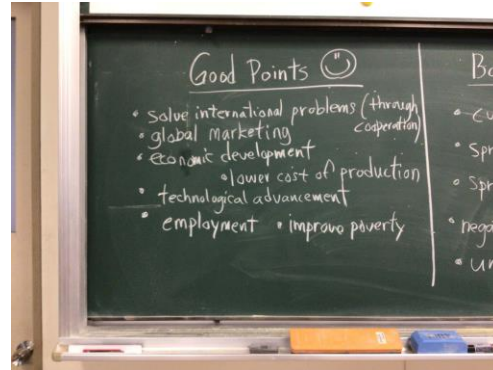 Good Points
• solve international problems (through cooperation)
• global marketing
• economic development
• lower cost of production
• technological advancement
• employment • improve poverty